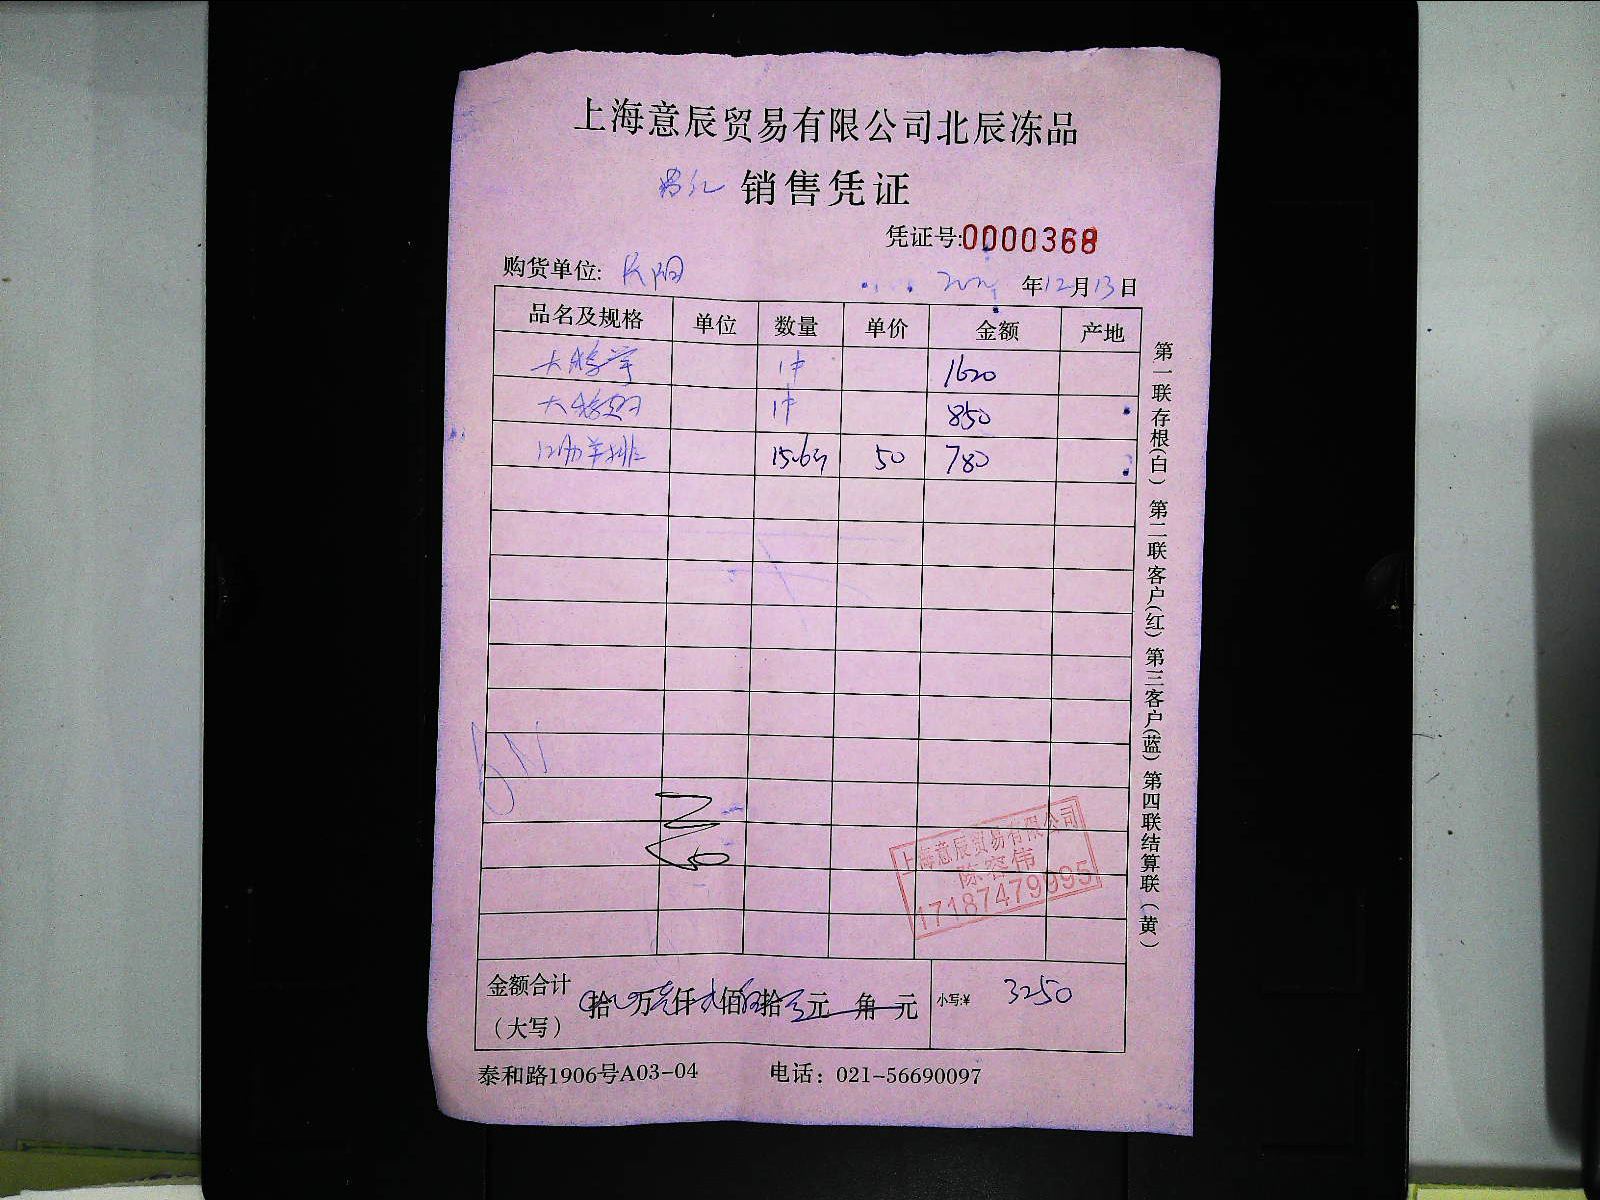 上海意辰贸易有限公司北辰冻品
销售凭证
凭证号:0000368
购货单位:
年12月13日
品名及规格 单位 数量 单价 金额 产地
1件 1620
1件 850
羊排 15.6斤 50 780
上海意辰贸易有限公司
陈容伟
17187479995
金额合计
（大写）
拾 万 仟 佰 拾 元 角 元
小写:¥ 3250
泰和路1906号A03-04 电话：021-56690097
第一联存根(白) 第二联客户(红) 第三客户(蓝) 第四联结算联(黄)